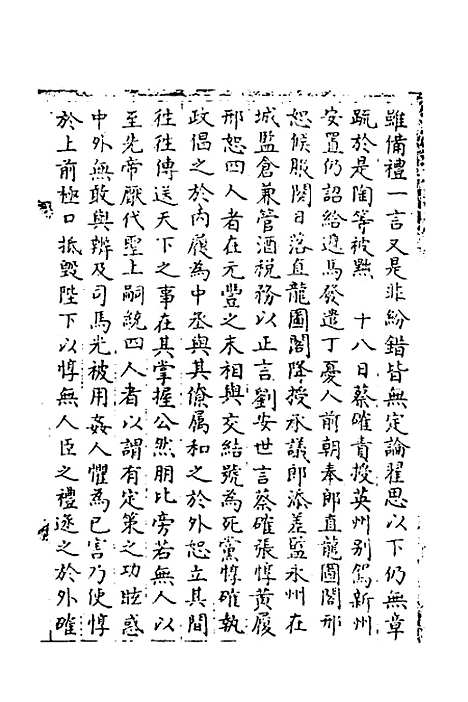 雖備禮一言又是非紛錯皆無定論翟思以下仍無章
䟽於是陶等被黜　十八日蔡確責授英州别駕新州
安置仍詔給遞馬發遣丁憂人前朝奉郎直龍圖閣邢
恕候服闋日落直龍圖閣降授承議郎添差監永州在
城監倉兼管酒税務以正言劉安世言蔡確張惇黄履
邢恕四人者在元豐之末相與交結號為死黨惇確執
政倡之於内履為中丞與其僚属和之於外恕立其間
往往傳送天下之事在其掌握公然朋比旁若無人以
至先帝厭代聖上嗣統四人者以謂有定策之功眩惑
中外無敢與辨及司馬光被用姦人懼為已害乃使惇
於上前極口抵毀陛下以惇無人臣之禮逐之於外確